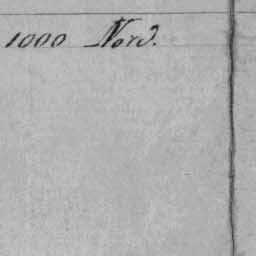 1000 Nord.